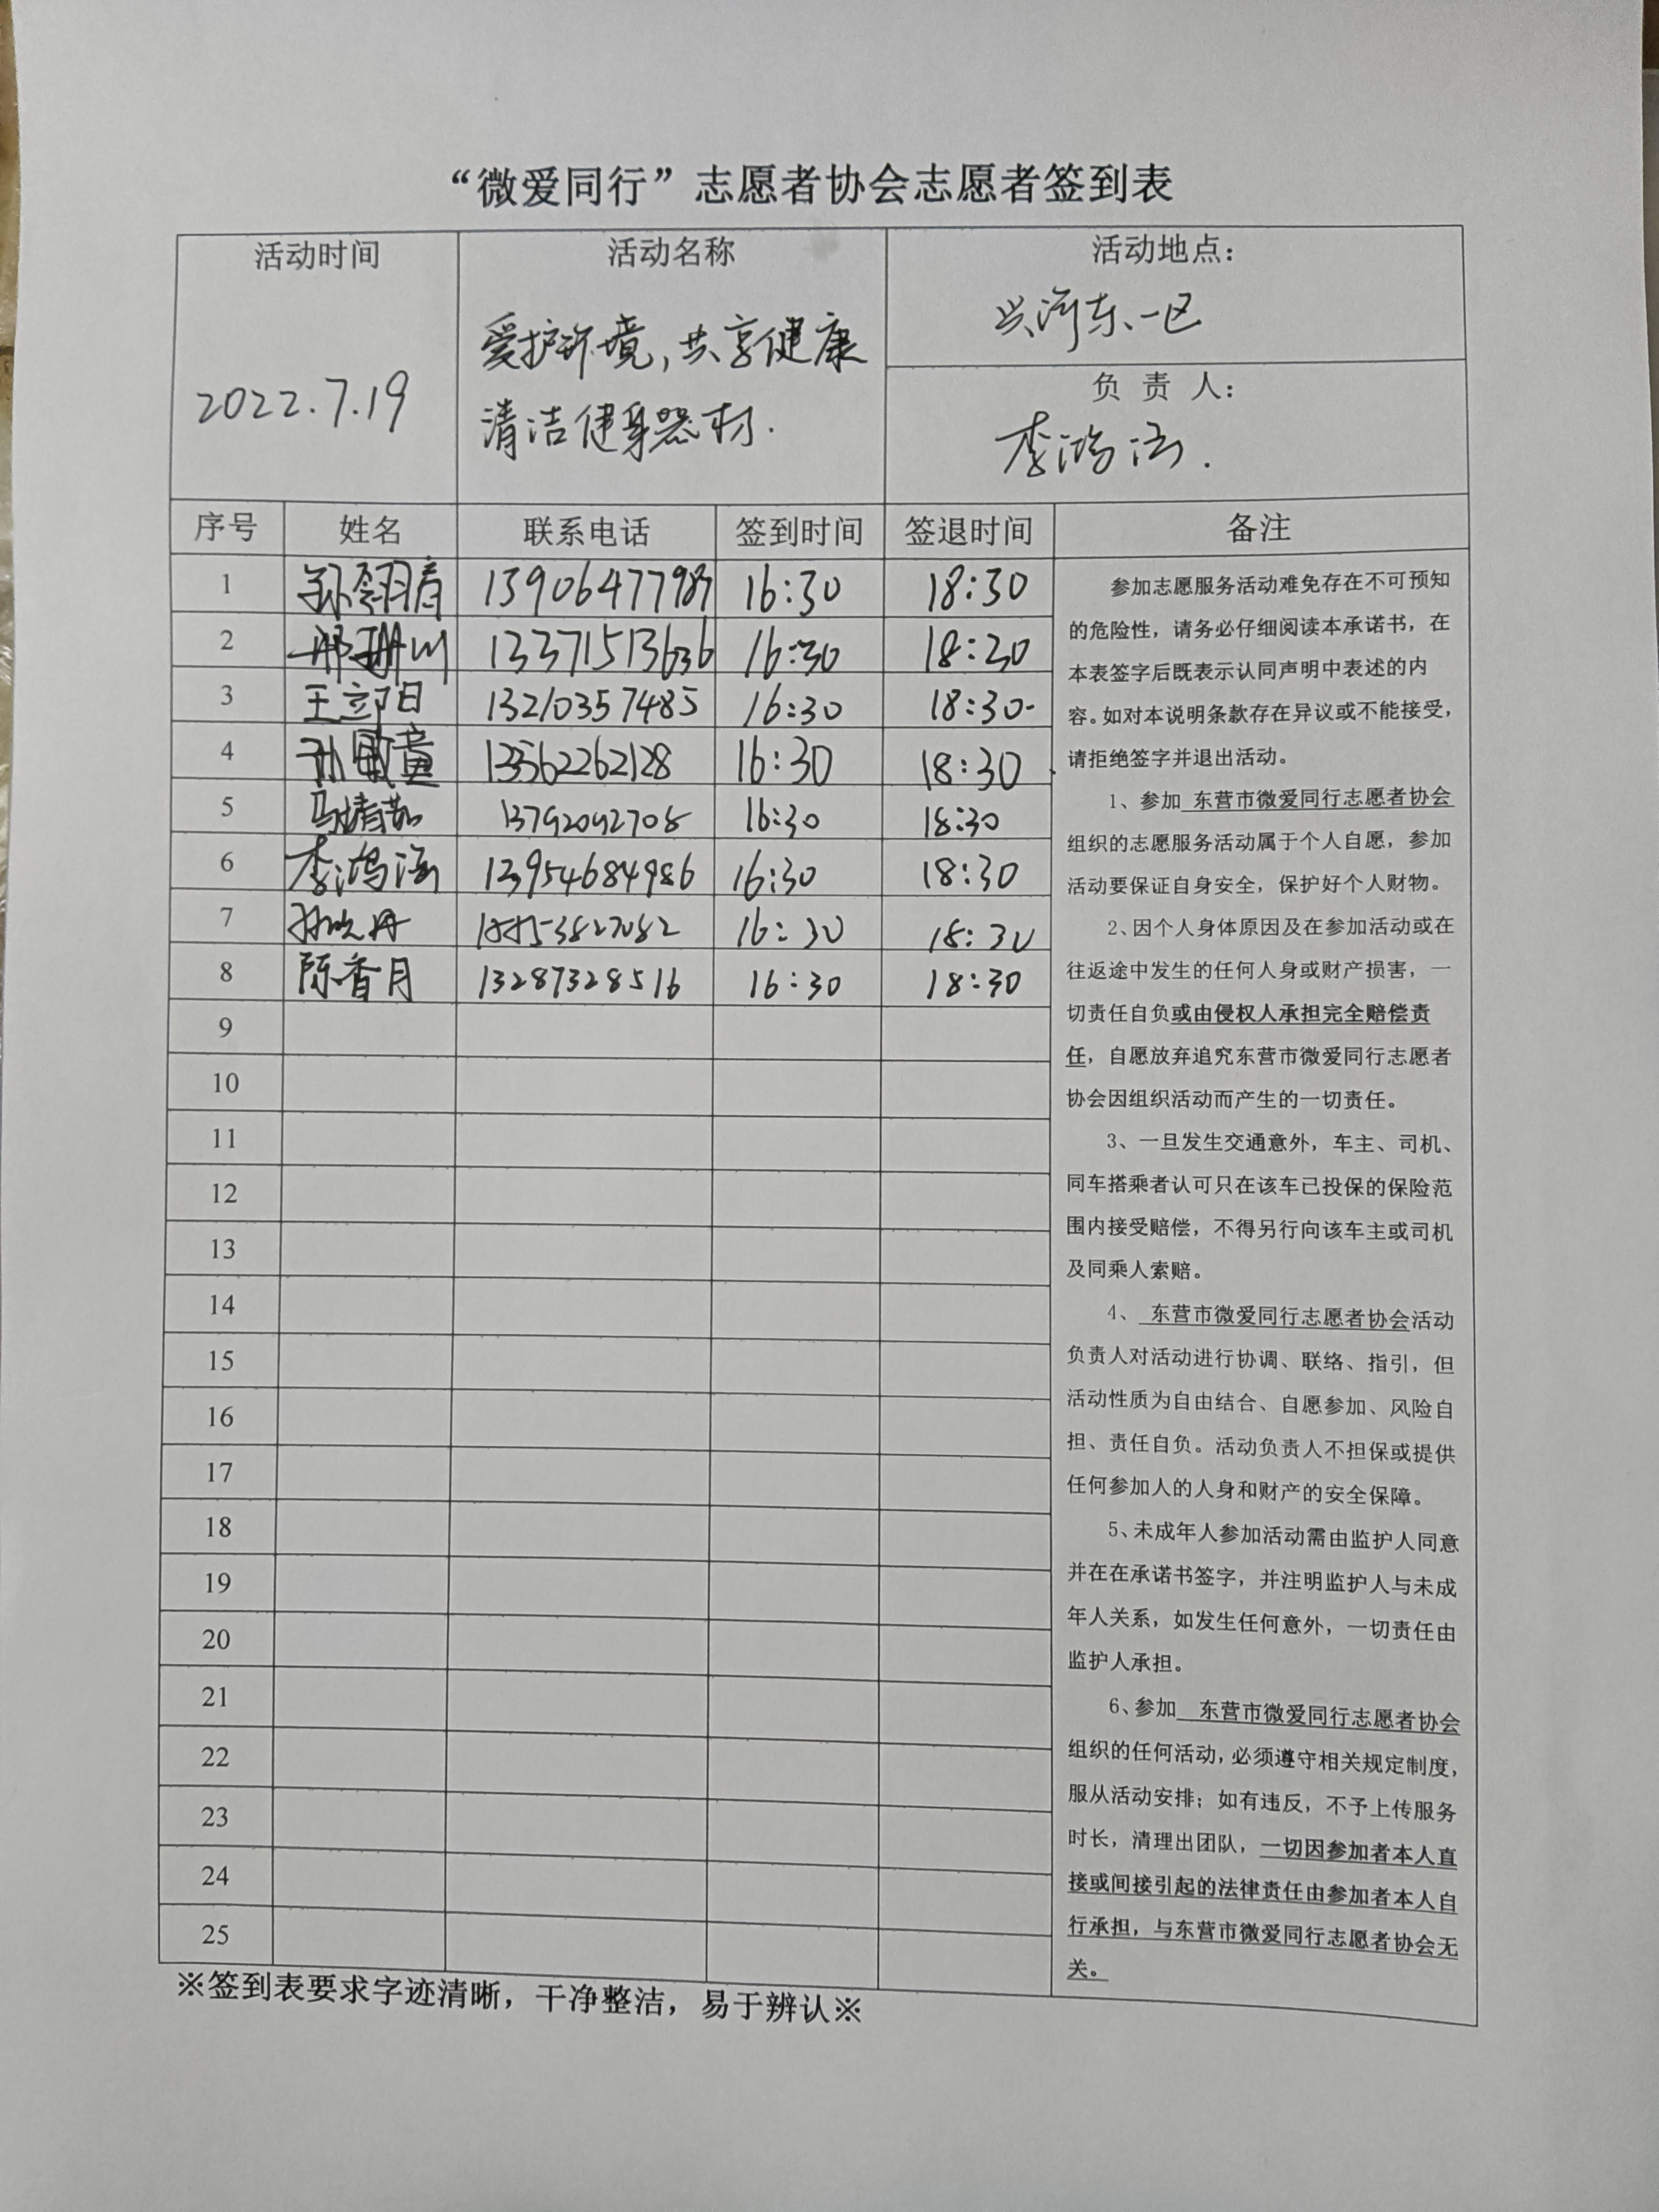 “微爱同行”志愿者协会志愿者签到表
活动时间
2022.7.19
活动名称
爱护环境,共享健康
清洁健身器材.
活动地点：
兴河东一区
负 责 人：
李鸿涵.
序号 姓名 联系电话 签到时间 签退时间 备注
1 孙翎春 13906477987 16:30 18:30
2 邢珊川 13371513636 16:30 18:30
3 王立阳 13210357485 16:30 18:30
4 孙 童 13562262128 16:30 18:30
5 马婧茹 13792092708 16:30 18:30
6 李鸿涵 13954684986 16:30 18:30
7 孙 丹 16:30 18:30
8 陈香月 13287328516 16:30 18:30
9
10
11
12
13
14
15
16
17
18
19
20
21
22
23
24
25
参加志愿服务活动难免存在不可预知
的危险性，请务必仔细阅读本承诺书，在
本表签字后既表示认同声明中表述的内
容。如对本说明条款存在异议或不能接受，
请拒绝签字并退出活动。
1、参加 东营市微爱同行志愿者协会
组织的志愿服务活动属于个人自愿，参加
活动要保证自身安全，保护好个人财物。
2、因个人身体原因及在参加活动或在
往返途中发生的任何人身或财产损害，一
切责任自负或由侵权人承担完全赔偿责
任，自愿放弃追究东营市微爱同行志愿者
协会因组织活动而产生的一切责任。
3、一旦发生交通意外，车主、司机、
同车搭乘者认可只在该车已投保的保险范
围内接受赔偿，不得另行向该车主或司机
及同乘人索赔。
4、 东营市微爱同行志愿者协会活动
负责人对活动进行协调、联络、指引，但
活动性质为自由结合、自愿参加、风险自
担、责任自负。活动负责人不担保或提供
任何参加人的人身和财产的安全保障。
5、未成年人参加活动需由监护人同意
并在在承诺书签字，并注明监护人与未成
年人关系，如发生任何意外，一切责任由
监护人承担。
6、参加 东营市微爱同行志愿者协会
组织的任何活动，必须遵守相关规定制度，
服从活动安排；如有违反，不予上传服务
时长，清理出团队，一切因参加者本人直
接或间接引起的法律责任由参加者本人自
行承担，与东营市微爱同行志愿者协会无
关。
※签到表要求字迹清晰，干净整洁，易于辨认※